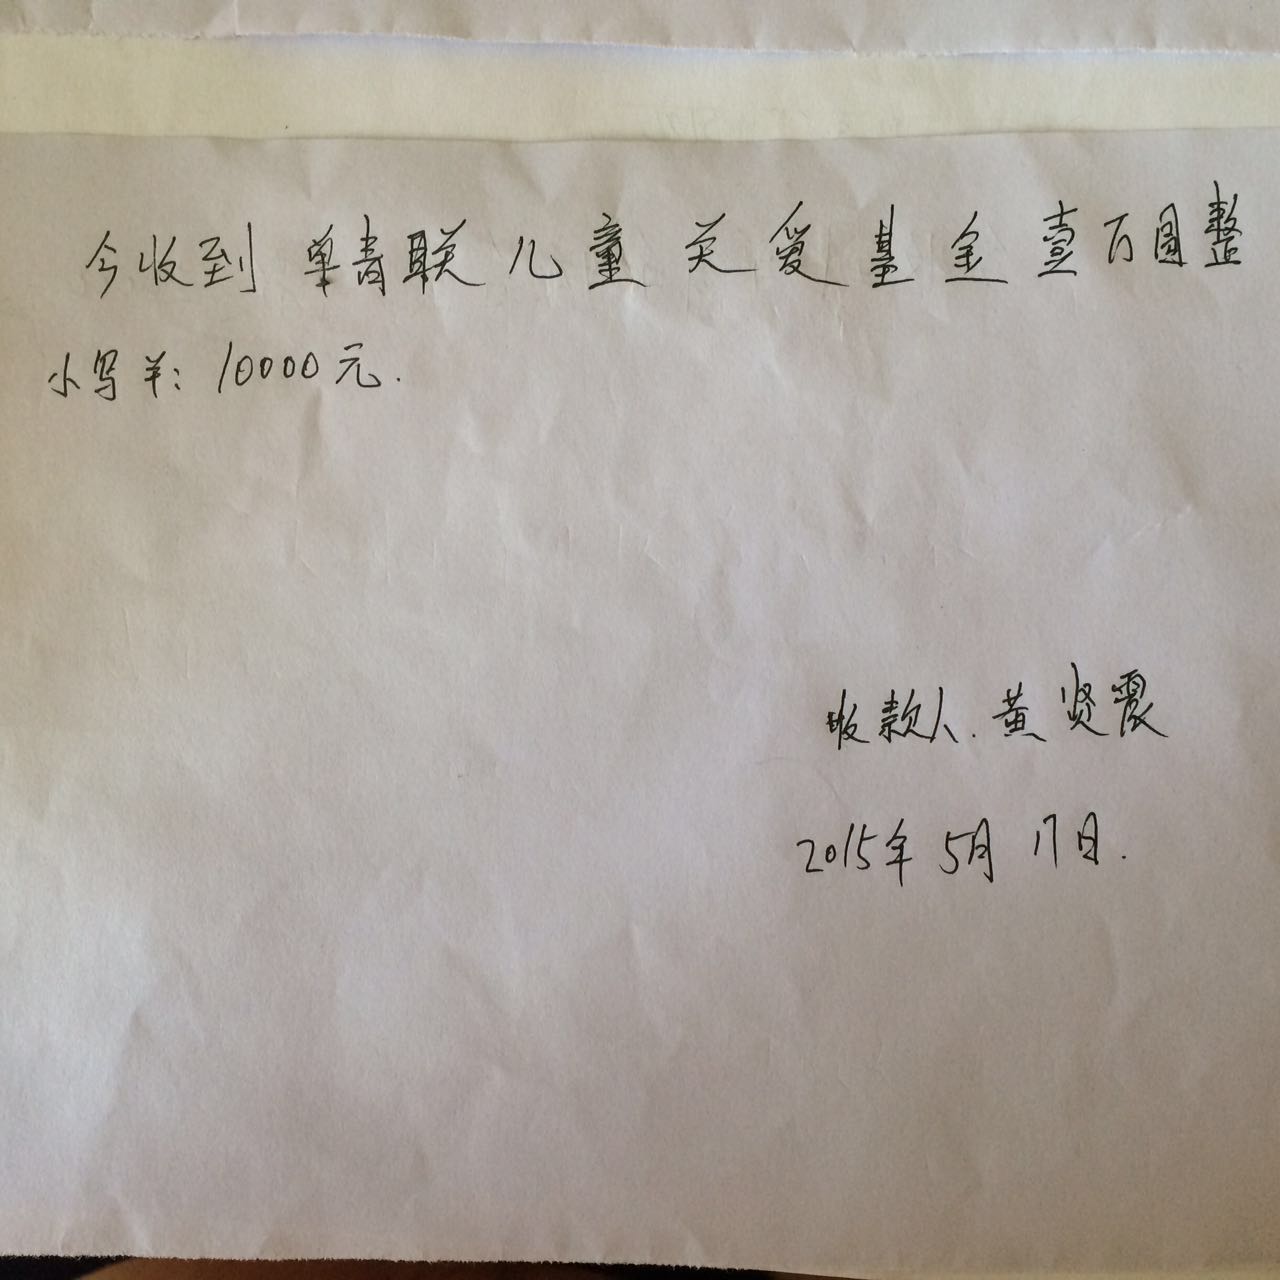 今收到 单青联儿童关爱基金壹百圆整
小写羊:10000元.
收款人.黄贤震
2015年5月17日.